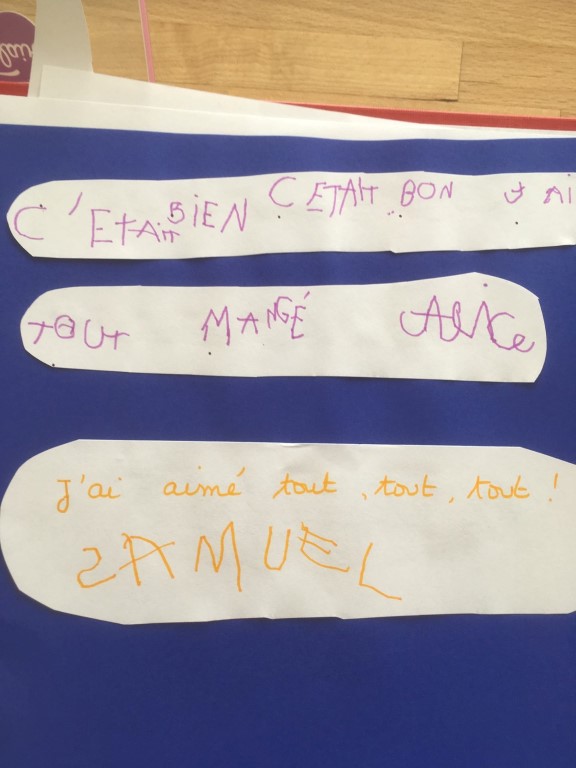 C'ETAIT BIEN C ETAIT BON J AI
TOUT MANGÉ Alice
J'ai aimé tout, tout, tout !
SAMUEL